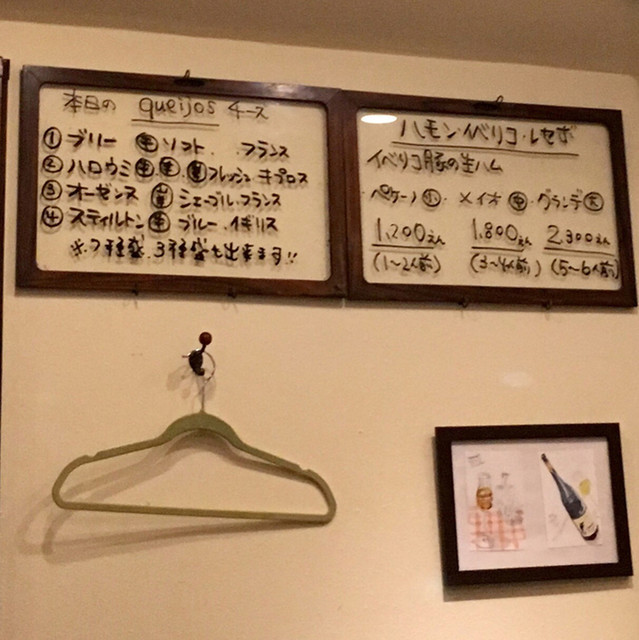 本日の queijos チーズ
① ブリー 牛 ソフト . フランス
② ハロウミ 牛 羊 山羊 フレッシュ キプロス
③ オーゼンス 山羊 シェーブル . フランス
④ スティルトン 牛 ブルー . イギリス
※ 2種盛 . 3種盛も出来ます!!
ハモン・イベリコ・レセボ
イベリコ豚の生ハム
ペケーノ 小 . メイオ 中 . グランデ 大
1,200えん 1,800えん 2,300えん
(1〜2人前) (3〜4人前) (5〜6人前)